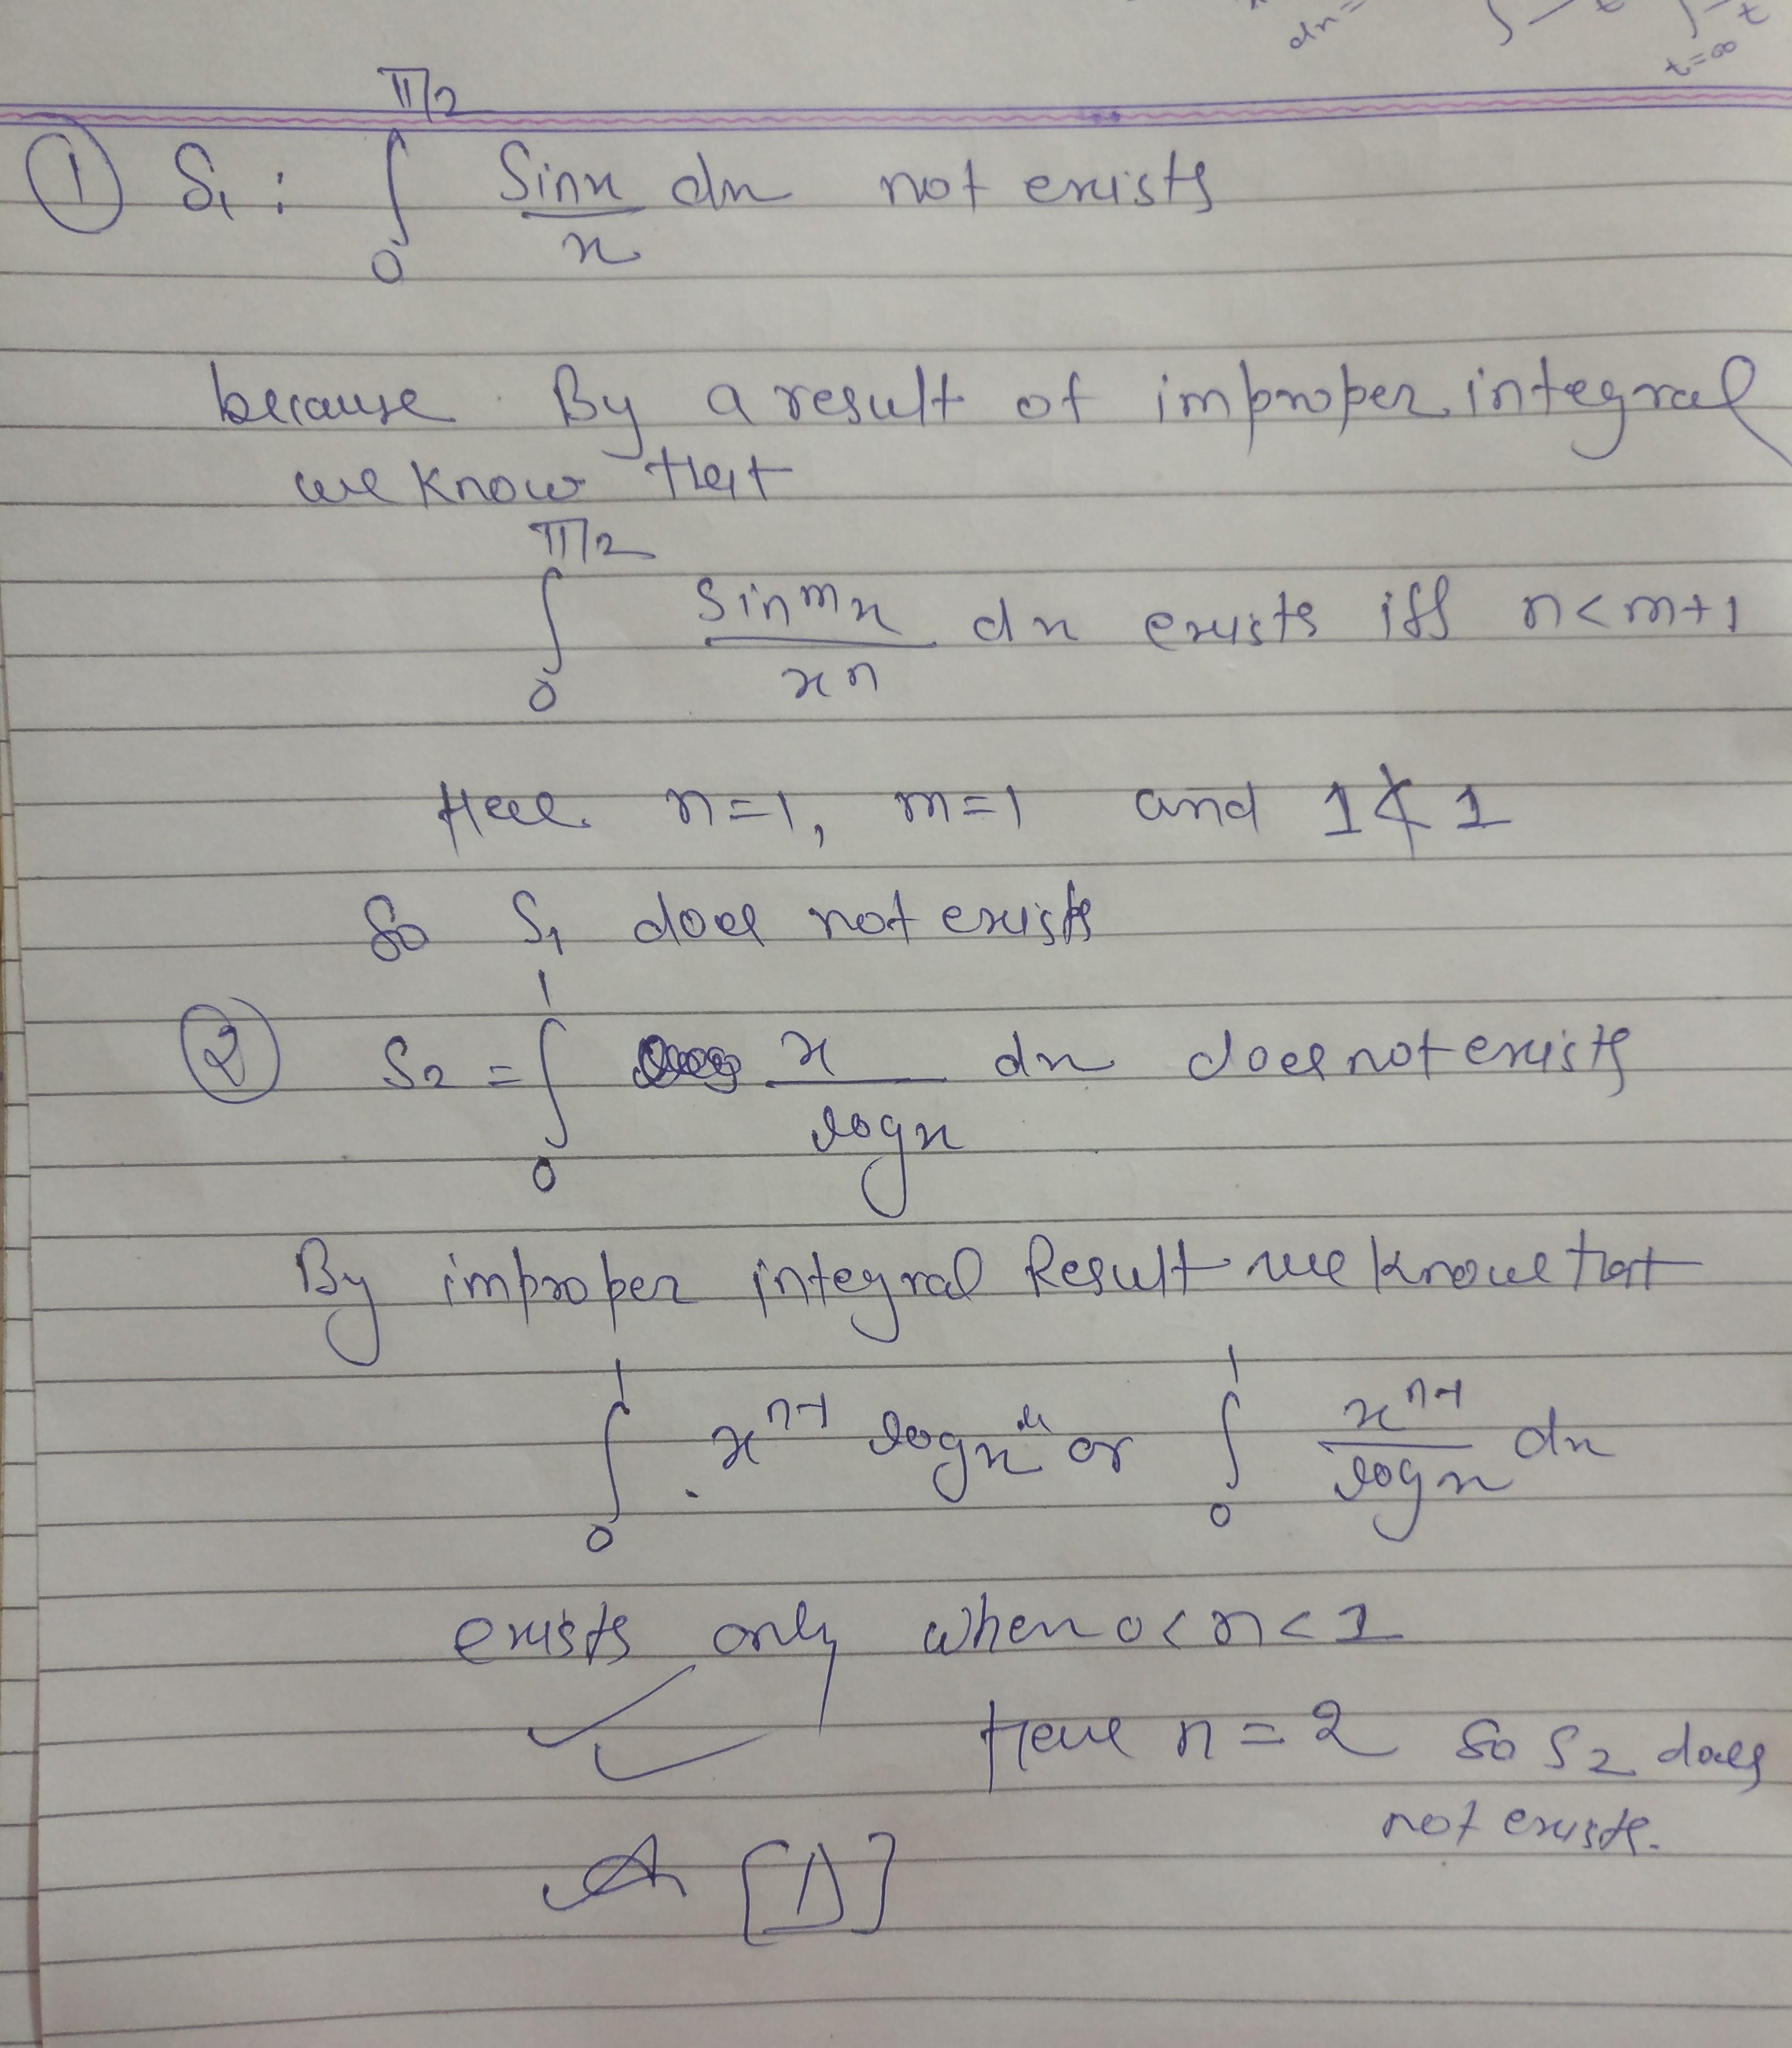 dx=
t
t
t=∞
π/2
① S₁ : ∫ Sinx/x dx not exists
0
because By a result of improper integral
we know that
π/2
∫ Sinᵐx/xⁿ dx exists iff n<m+1
0
Here n=1, m=1 and 1≮1
So S₁ does not exists
1
② S₂ = ∫ x/logx dx does not exists
0
By improper integral Result we know that
1 1
∫ xⁿ⁻¹ logx or ∫ xⁿ⁻¹/logx dx
0 0
exists only when 0<n<1
Here n=2 So S₂ does
not exists.